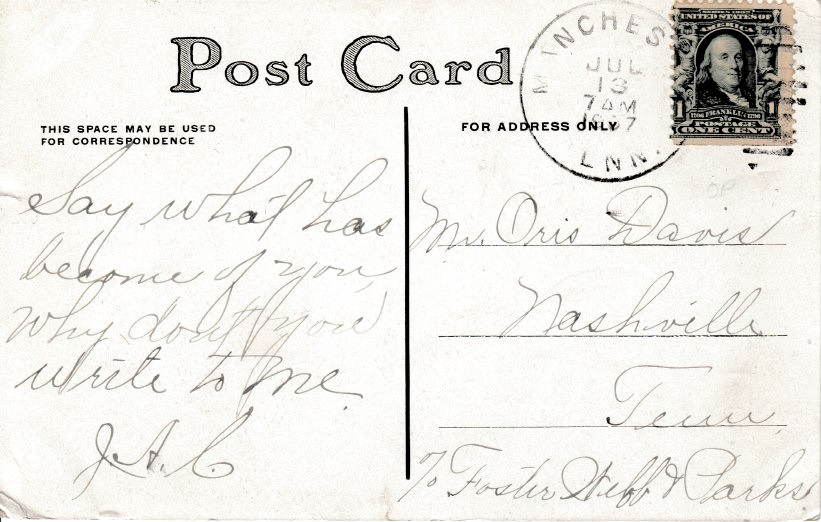 Post Card
THIS SPACE MAY BE USED
FOR CORRESPONDENCE
FOR ADDRESS ONLY
INCHES
JUL
13
7 AM
1907
UNITED STATES OF
AMERICA
1 FRANKLIN 1
POSTAGE
ONE CENT
Say what has
become of you,
Why don't you
write to me.
J.A.C.
Mr. Oris Davis
Nashville
Tenn,
c/o Foster Webb & Parks